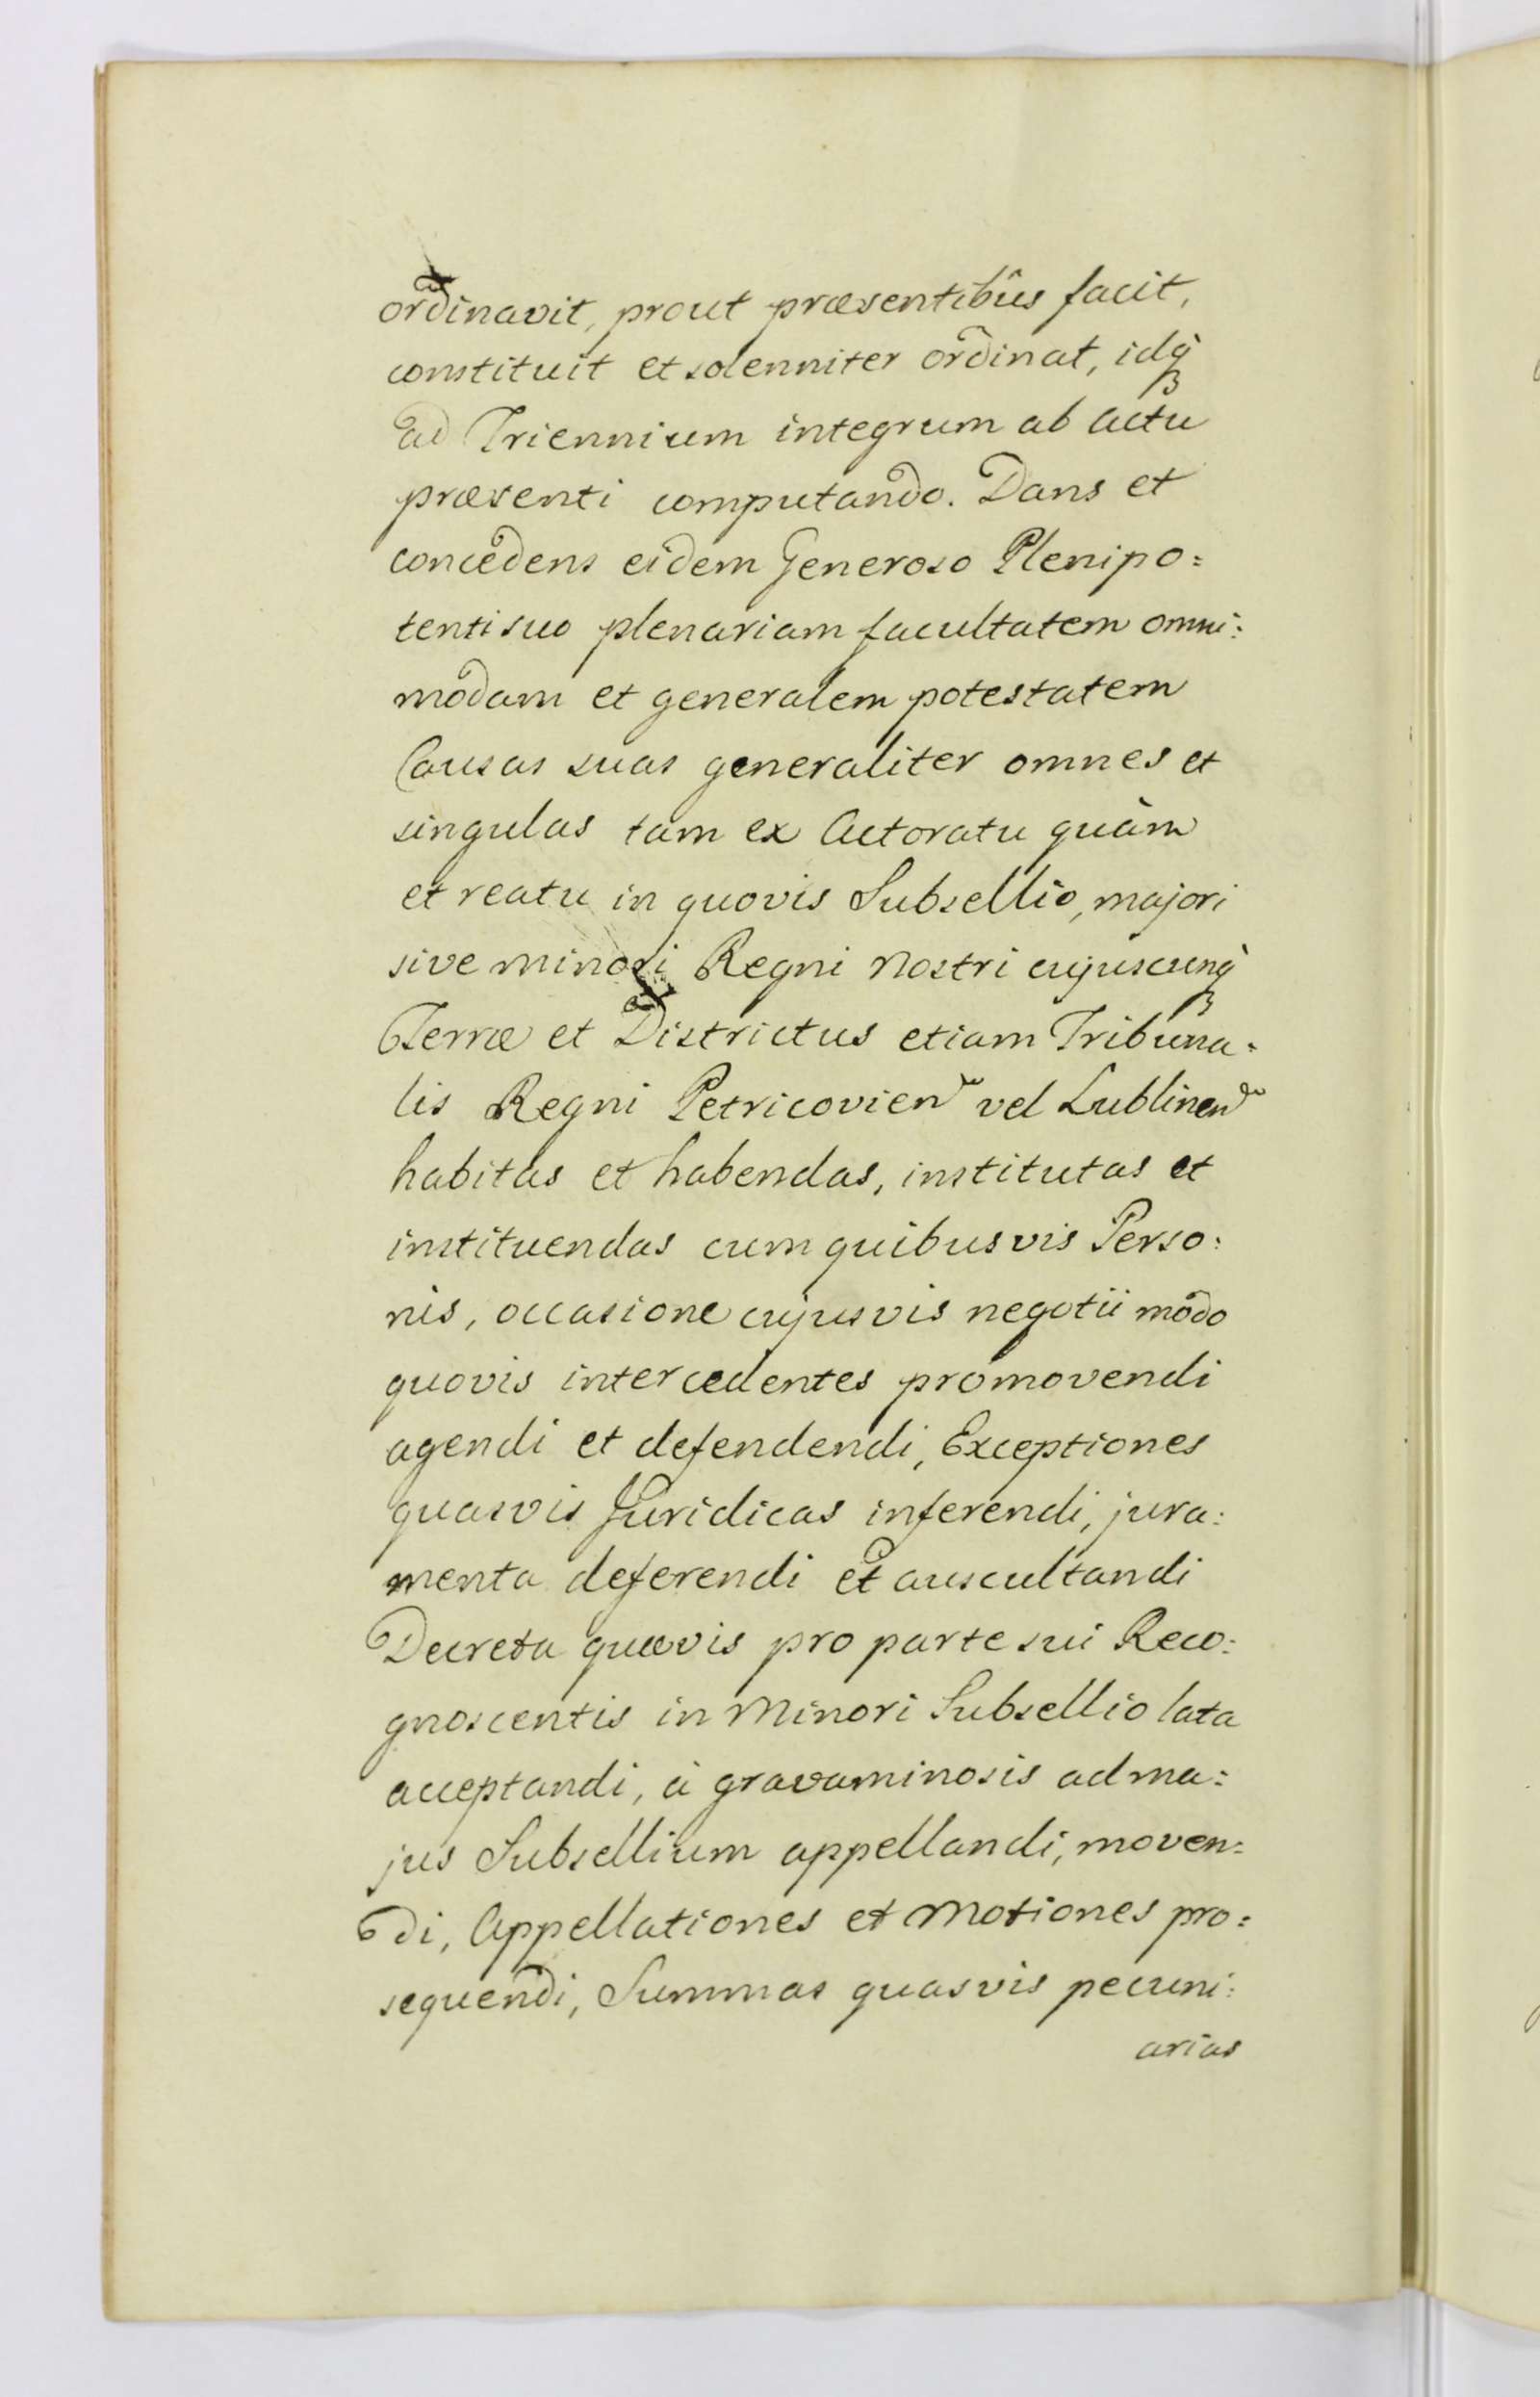 ordinavit, prout præsentibus facit,
constituit et solenniter ordinat, idq
ad Triennium integrum ab actu
præsenti computando. Dans et
concedens eidem Generoso Plenipo=
tenti suo plenariam facultatem omni:
modam et generalem potestatem
Causas suas generaliter omnes et
singulas tam ex Actoratu quàm
et reatu in quovis Subsellio, majori
sive minori Regni Nostri cujuscunq
Terræ et Districtus etiam Tribuna=
lis Regni Petricovien vel Lublinen
habitas et habendas, institutas et
instituendas cum quibusvis Perso:
nis, occasione cujusvis negotii modo
quovis intercedentes promovendi
agendi et defendendi, Exceptiones
quasvis Juridicas inferendi, jura:
menta deferendi et auscultandi
Decreta quævis pro parte sui Reco:
gnoscentis in Minori Subsellio lata
acceptandi, à gravaminosis ad ma:
jus Subsellium appellandi, moven=
di, Appellationes et Motiones pro=
sequendi, Summas quasvis pecuni:
arias